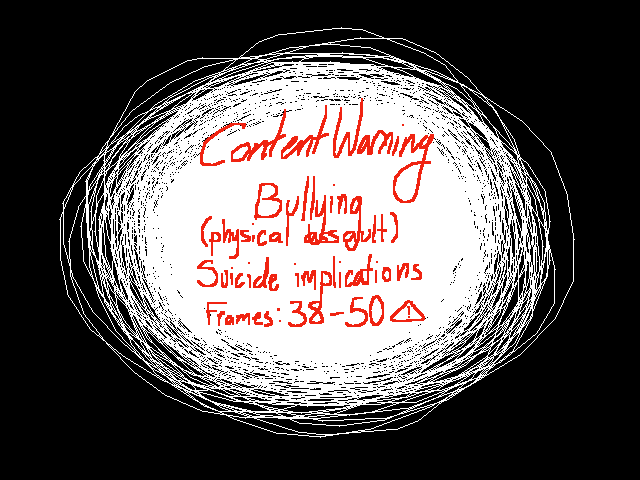 Content Warning
Bullying
(physical assault)
Suicide implications
Frames: 38-50 ⚠